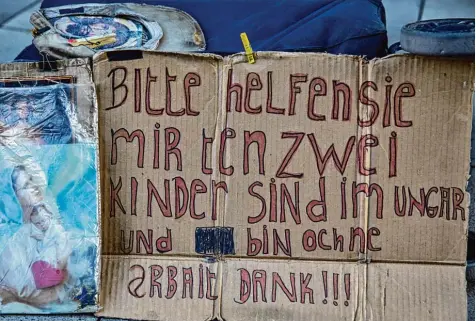 Bitte helfen sie
mir ten zwei
kinder sind im ungar
und bin ochne
Arbait Dank!!!